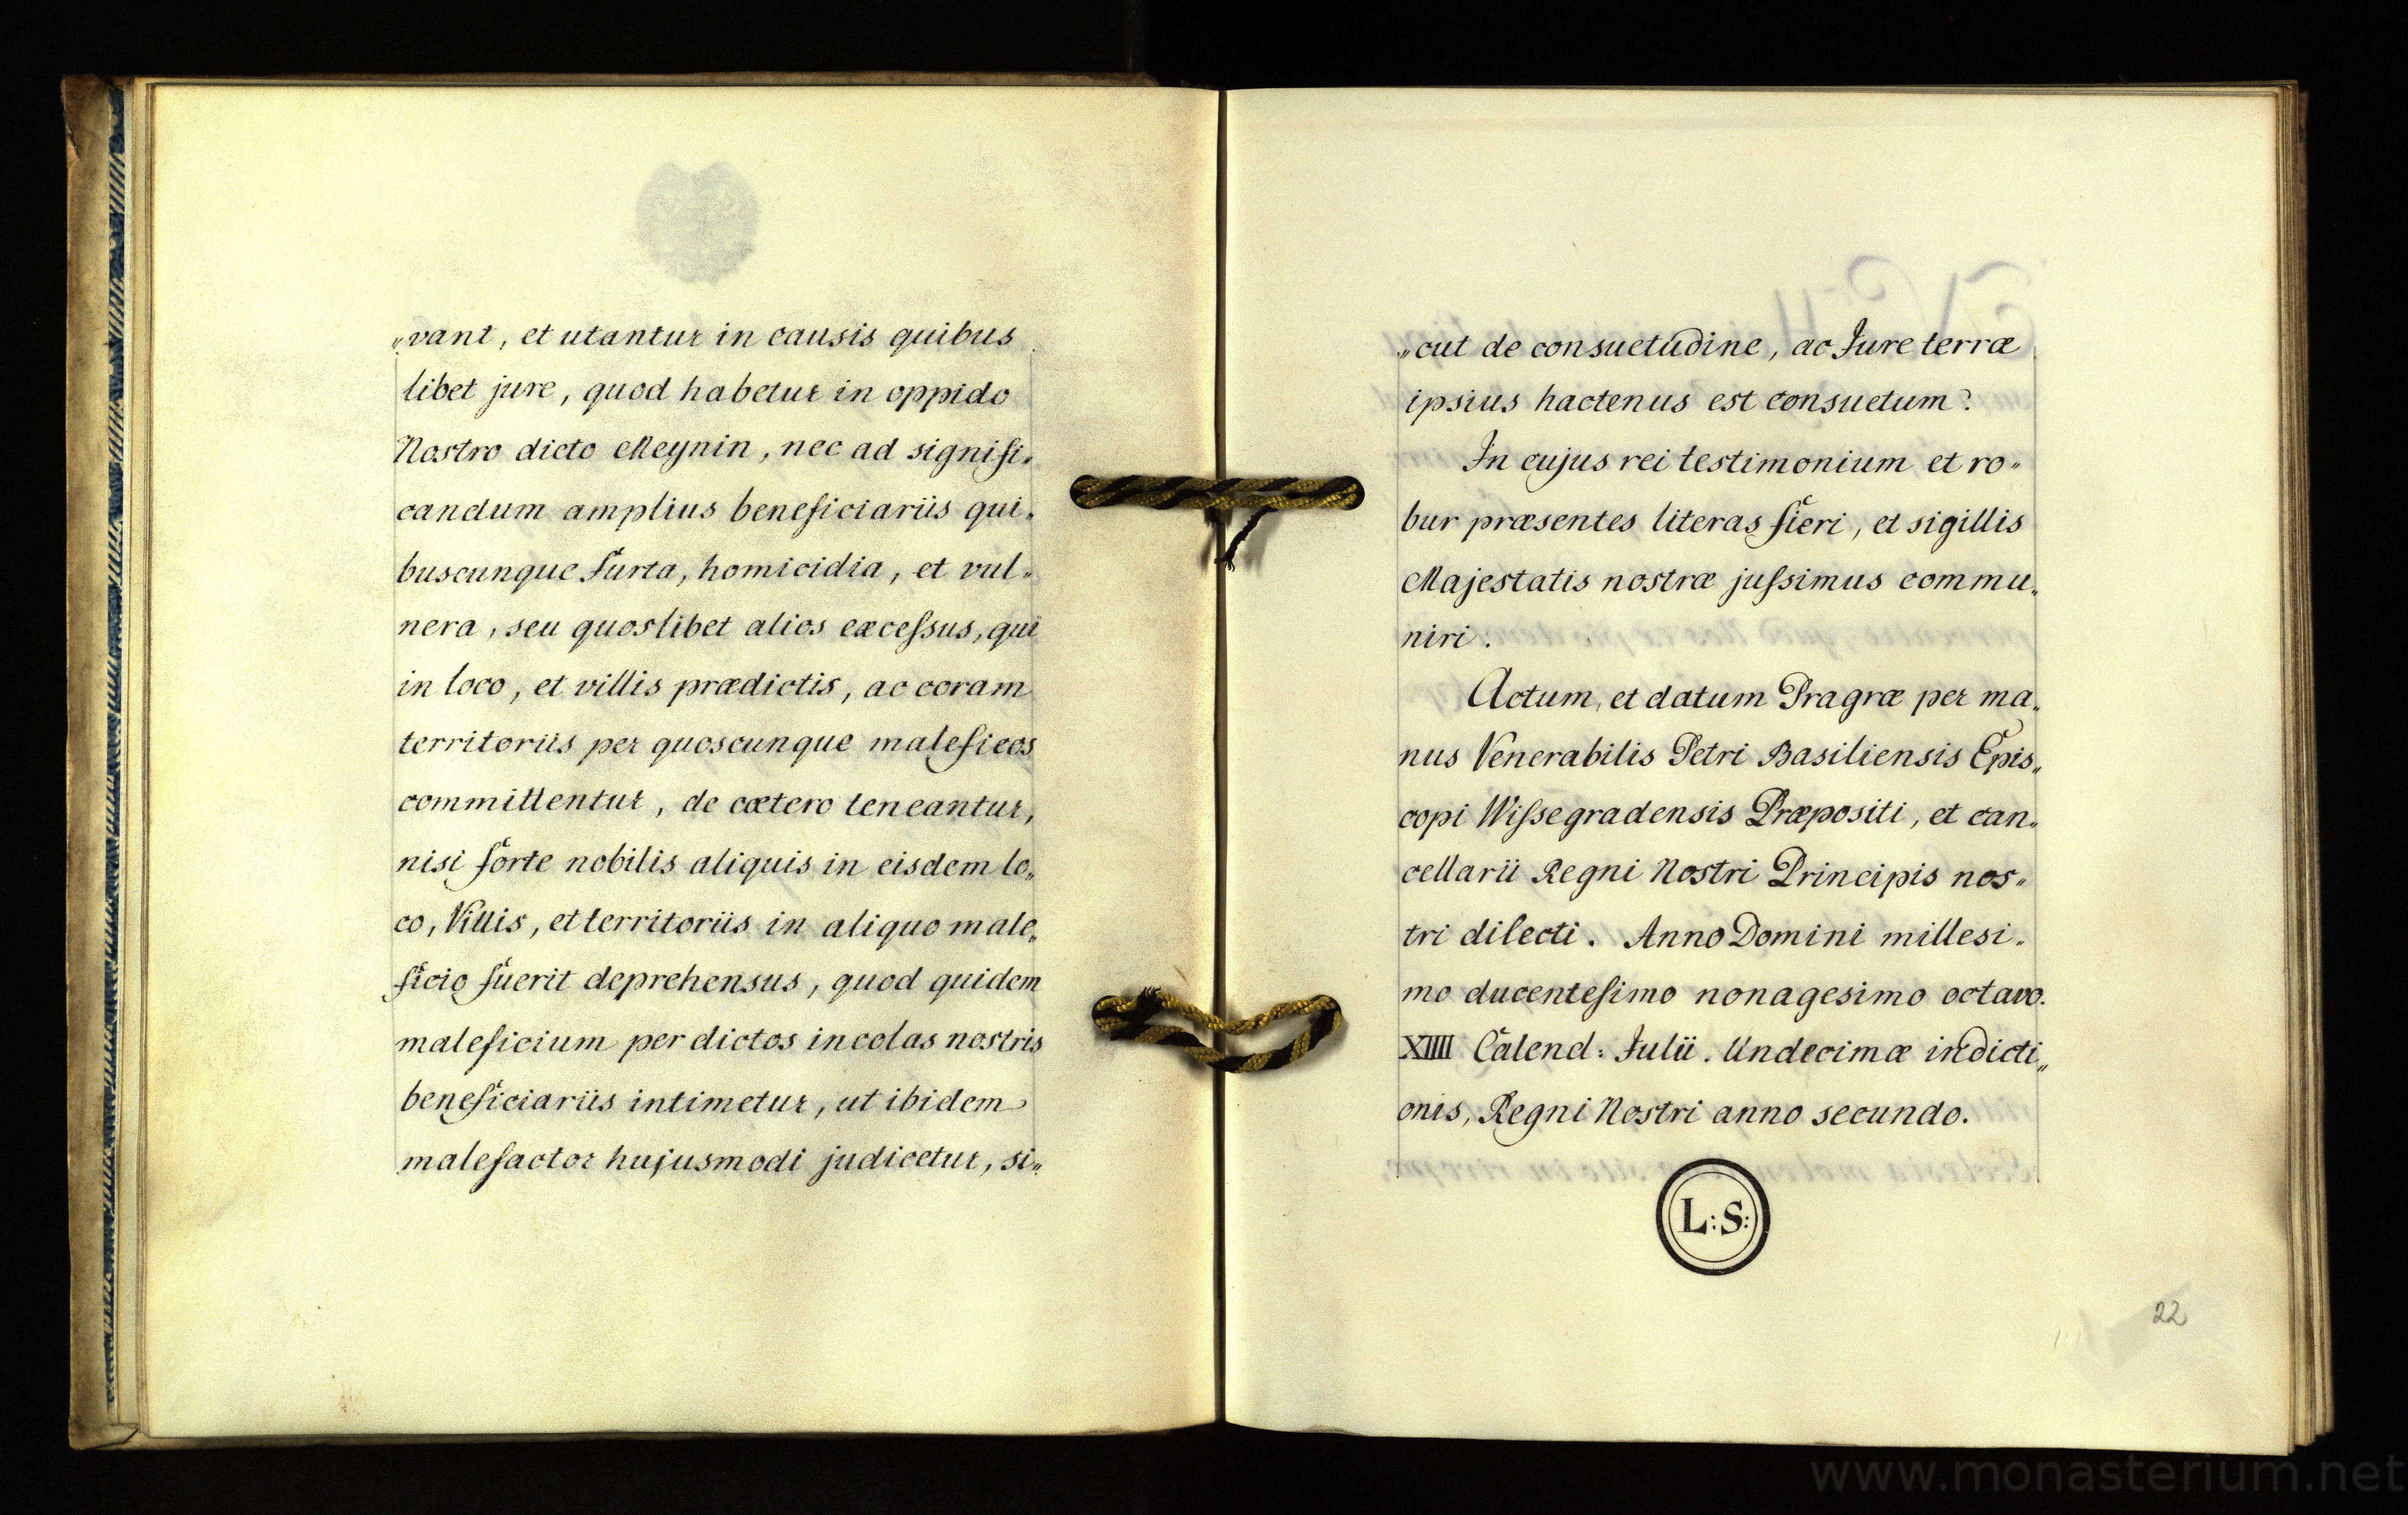 „vant, et utantur in causis quibus
libet jure, quod habetur in oppido
Nostro dicto Meynin, nec ad signifi„
candum amplius beneficiariis qui„
buscunque furta, homicidia, et vul„
nera, seu quoslibet alios exceſsus, qui
in loco, et villis prædictis, ac coram
territoriis per quoscunque maleficos
committentur, de cætero teneantur,
nisi forte nobilis aliquis in eisdem lo„
co, Villis, et territoriis in aliquo male„
ficio fuerit deprehensus, quod quidem
maleficium per dictos incolas nostris
beneficiariis intimetur, ut ibidem
malefactor hujusmodi judicetur, si„
„cut de consuetudine, ac Jure terræ
ipsius hactenus est consuetum.
In cujus rei testimonium et ro„
bur præsentes literas fieri, et sigillis
Majestatis nostræ juſsimus commu„
niri.
Actum, et datum Pragræ per ma„
nus Venerabilis Petri Basiliensis Epis„
copi Wiſsegradensis Præpositi, et can„
cellarii Regni Nostri Principis nos„
tri dilecti. Anno Domini millesi„
mo ducenteſimo nonagesimo octavo.
XIIII Calend: Julii. Undecimæ indicti„
onis, Regni Nostri anno secundo.
L:S:
22
www.monasterium.net